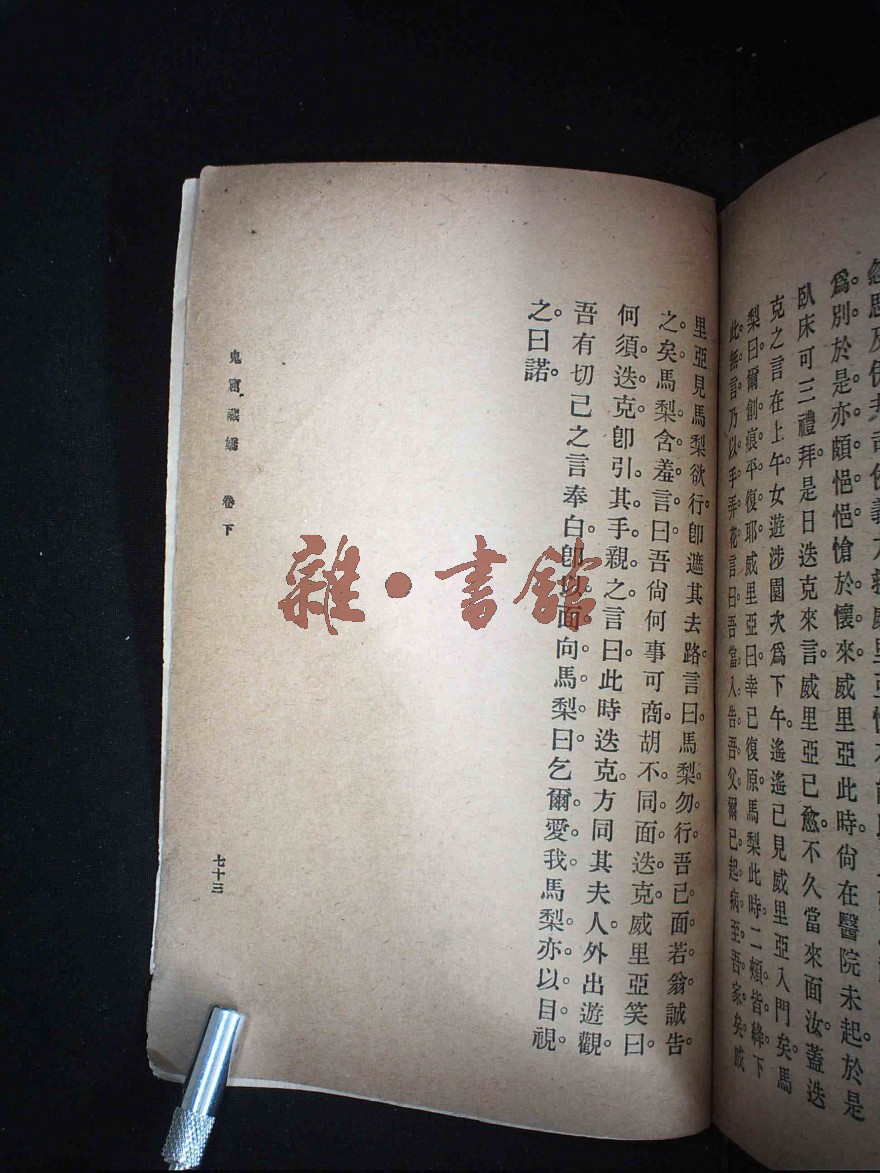 爲。別於是。亦頗悒悒愴於懷。來威里亞此時。尙在醫院未起。於是
臥床可三禮拜。是日迭克來言。威里亞已愈。不久當來面汝。蓋迭
克之言在上午。女遊涉園次。爲下午。遙遙已見威里亞入門矣。馬
梨曰。爾創痕平復耶。威里亞曰。幸已復原。馬梨此時。二頰皆絳。下
此。無言。乃以手弄花。言曰。吾當入告吾父。爾已起病。至吾家矣。威
里亞見馬梨欲行。卽遮其去路。言曰。馬梨勿行。吾已面若翁。誠告
之矣。馬梨含羞。言曰。吾尙何事可商。胡不同面迭克。威里亞笑曰。
何須迭克。卽引其手親之。言曰。此時迭克。方同其夫人。外出遊觀。
吾有切己之言奉白。卽以面向馬梨。曰。乞爾愛我。馬梨。亦以目視
之。曰。諾。
鬼窟藏嬌 卷下
七十三
雜·書館